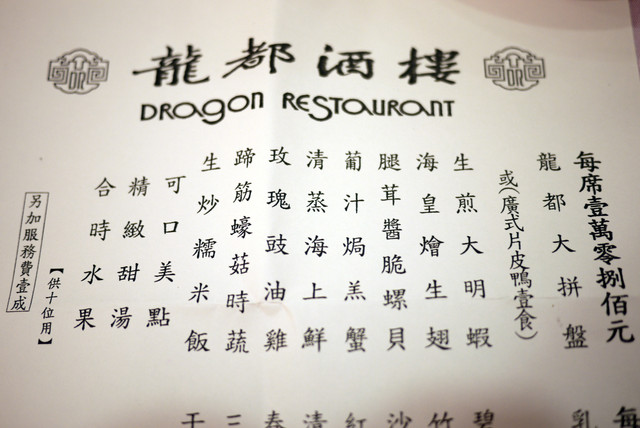 龍都酒樓
DRagon RESTauRanT
每席壹萬零捌佰元
龍都大拼盤
或(廣式片皮鴨壹食)
生煎大明蝦
海皇燴生翅
腿茸醬脆螺貝
葡汁焗羔蟹
清蒸海上鮮
玫瑰豉油雞
蹄筋蠔菇時蔬
生炒糯米飯
可口美點
精緻甜湯
合時水果
【供十位用】
另加服務費壹成
每
乳
碧
竹
沙
紅
清
春
三
干